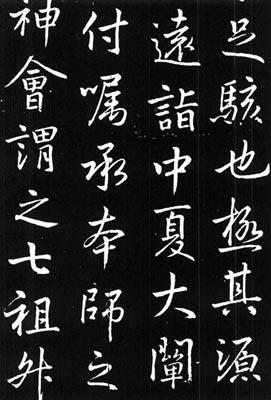 足駭也極其須
遠詣中夏大闡
付嘱承本師之
神會謂之七祖外